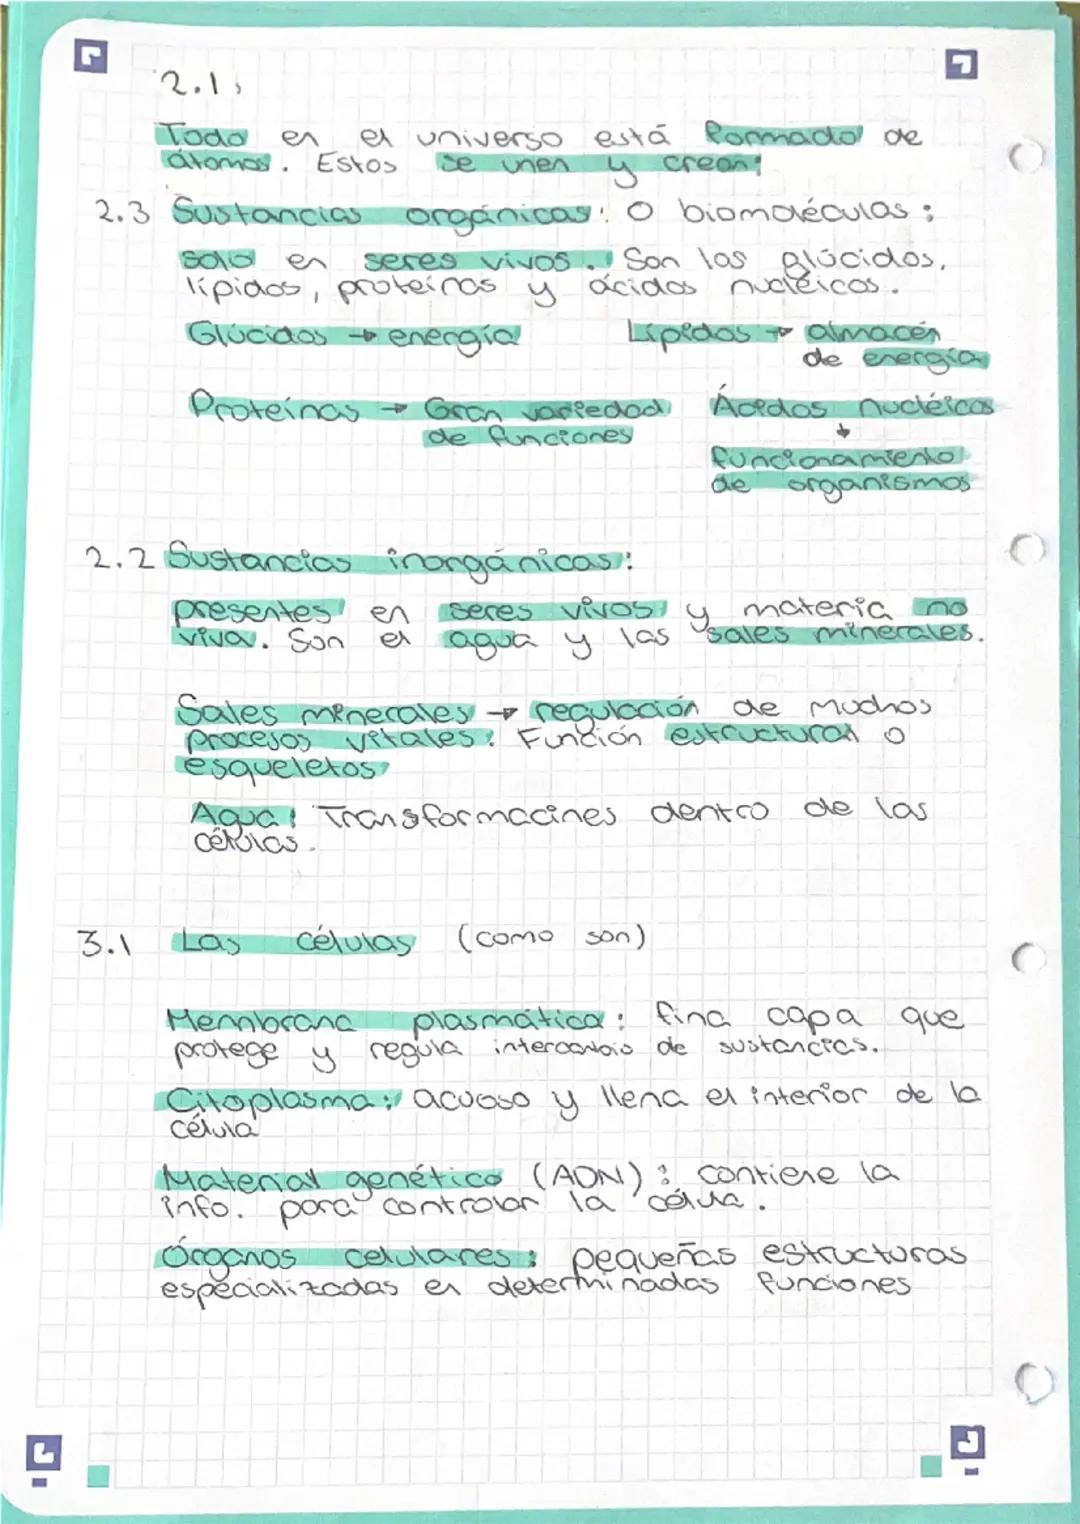 2.1,
Todo en el universo está formado de
átomos. Estos se unen y crean:
2.3 Sustancias orgánicas: O biomoléculas:
solo en seres vivos. Son los glúcidos,
lípidos, proteínas y ácidos nucléicos.
Glúcidos → energía
Lípidos → almacén
de energía
Proteínas → Gran variedad
de funciones
Ácidos nucléicos
↓
funcionamiento
de organismos
2.2 Sustancias inorgánicas:
presentes en seres vivos y materia no
viva. Son el agua y las sales minerales.
Sales minerales → regulación de muchos
procesos vitales. Función estructural o
esqueletos
Agua: Transformacines dentro de las
células.
3.1 Las células (como son)
Membrana plasmática: fina capa que
protege y regula intercambio de sustancias.
Citoplasma: acuoso y llena el interior de la
célula
Material genético (ADN): contiene la
info. para controlar la célula.
Órganos celulares: pequeñas estructuras
especializadas en determinadas funciones